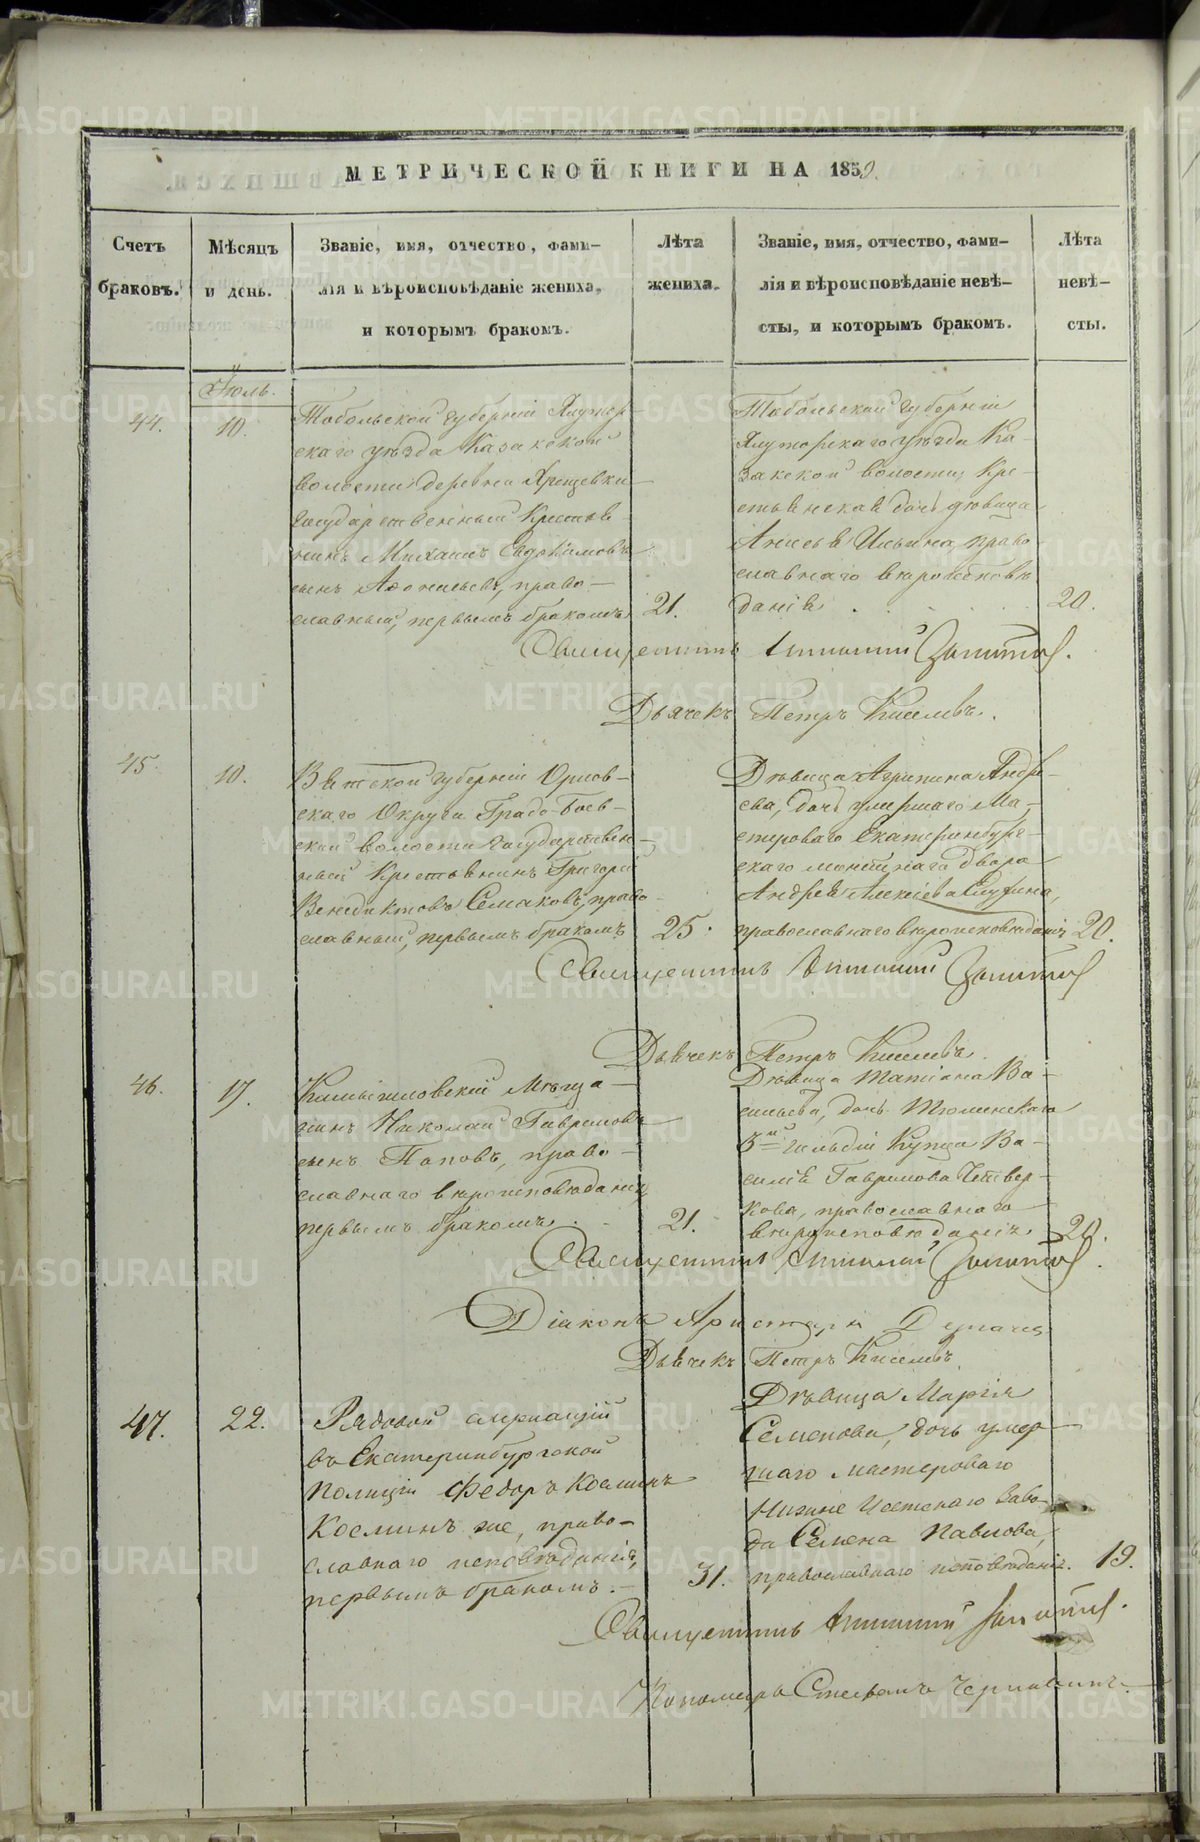 МЕТРИЧЕСКОЙ КНИГИ НА 1859.
Счетъ браковъ.
Мѣсяцъ и день.
Званіе, имя, отчество, фами-
лія и вѣроисповѣданіе жениха,
и которымъ бракомъ.
Лѣта жениха.
Званіе, имя, отчество, фами-
лія и вѣроисповѣданіе невѣ-
сты, и которымъ бракомъ.
Лѣта невѣ-
сты.
Іюль.
44.
10.
Тобольской губерніи Ялутор-
скаго уѣзда Казакской
волости деревни
Государственный Крестья-
нинъ Михаилъ Евдокимовъ
сынъ право-
славный, первымъ бракомъ
21.
Тобольской губерніи
Ялуторскаго уѣзда Ка-
закской волости, Кре-
стьянская дочь дѣвица
Анисья Ильина, право-
славнаго вѣроисповѣ-
данія
20.
Священникъ
Дьячекъ Петръ Киселевъ.
45.
10.
Вятской губерніи Орлов-
скаго Округа
ской волости Государствен-
ный Крестьянинъ Григорій
Венедиктовъ Семаковъ, право-
славный, первымъ бракомъ
25.
Дѣвица Агрипина Андре-
ева, дочь умершаго Ма-
стероваго Екатеринбург-
скаго монетнаго двора
Андрея Алексѣева
православнаго вѣроисповѣданія
20.
Священникъ
Дьячекъ Петръ Киселевъ.
46.
17.
Камышловскій Мѣща-
нинъ Николай Гавриловъ
сынъ Поповъ, право-
славнаго вѣроисповѣданія,
первымъ бракомъ.
21.
Дѣвица Татіана Ва-
сильева, дочь Тюменскаго
3й гильдіи Купца Ва-
силія Гаврилова Четвер-
кова, православнаго
вѣроисповѣданія.
20.
Священникъ
Діаконъ Аристархъ
Дьячекъ Петръ Киселевъ.
47.
22.
Рядовой служащій
въ Екатеринбургской
Полиціи Федоръ Косминъ
Косминъ же, право-
славнаго исповѣданія,
первымъ бракомъ.
31.
Дѣвица Марія
Семенова, дочь умер-
шаго мастероваго
Нижне Исетскаго Заво-
да Семена Павлова,
православнаго исповѣданія.
19.
Священникъ
Пономарь Стефанъ
METRIKI.GASO-URAL.RU